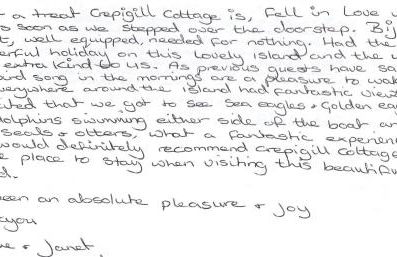 a treat Crepigill Cottage is, Fell in Love
s soon as we stepped over the doorstep.
well equipped, needed for nothing. Had the
erful holiday on this Lovely Island and the
extra kind to us. As previous guests have sa
ird song in the mornings are a pleasure to wak
verywhere around the island had fantastic view
ited that we got to see sea eagles + Golden ea
dolphins swimming either side of the boat an
seals + otters, what a fantastic experien
would definitely recommend crepigill cottage
e place to stay when visiting this beautifu
d.
een an absolute pleasure + Joy
you
e + Janet.